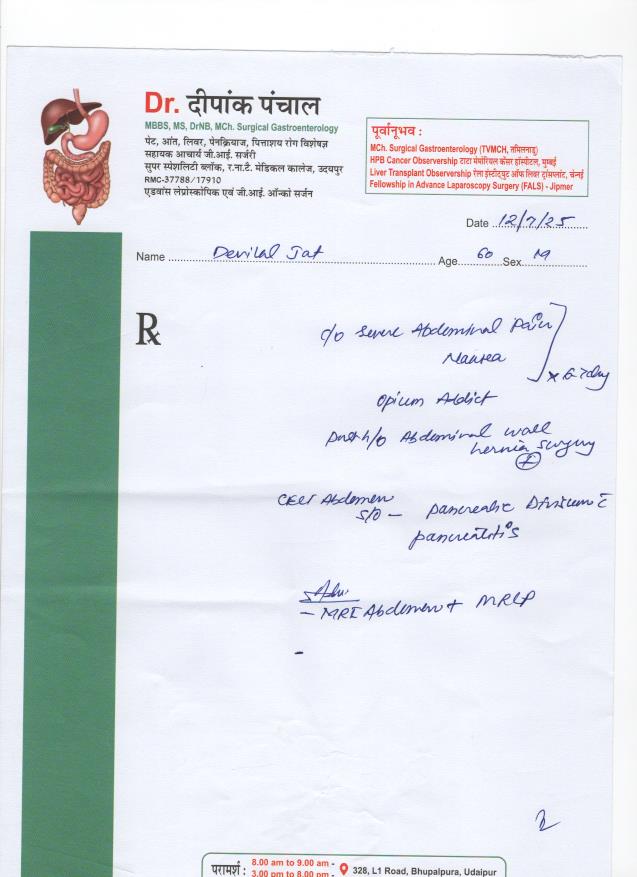 Dr. दीपांक पंचाल
MBBS, MS, DrNB, MCh. Surgical Gastroenterology
पेट, आंत, लिवर, पेनक्रियाज, पित्ताशय रोग विशेषज्ञ
सहायक आचार्य जी.आई. सर्जरी
सुपर स्पेशलिटी ब्लॉक, र.ना.टै. मेडिकल कालेज, उदयपुर
RMC-37788/17910
एडवांस लेप्रोस्कोपिक एवं जी.आई. ऑन्को सर्जन
पूर्वानूभव :
MCh. Surgical Gastroenterology (TVMCH, तमिलनाडु)
HPB Cancer Observership टाटा मेमोरियल कैंसर हॉस्पीटल, मुम्बई
Liver Transplant Observership रेला इंस्टीट्युट ऑफ लिवर ट्रांसप्लांट, चेन्नई
Fellowship in Advance Laparoscopy Surgery (FALS) - Jipmer
Date 12/7/25
Name Devilal Jat Age 60 Sex M
Rx
c/o Severe Abdominal Pain
Nausea
x 6-7 day
Opium Addict
Past h/o Abdominal wall
hernia surgery
+
CECT Abdomen
S/O - Pancreatic Divisum c
pancreatitis
Adv.
- MRI Abdomen + MRCP
-
परामर्श : 8.00 am to 9.00 am -
3.00 pm to 8.00 pm -
328, L1 Road, Bhupalpura, Udaipur